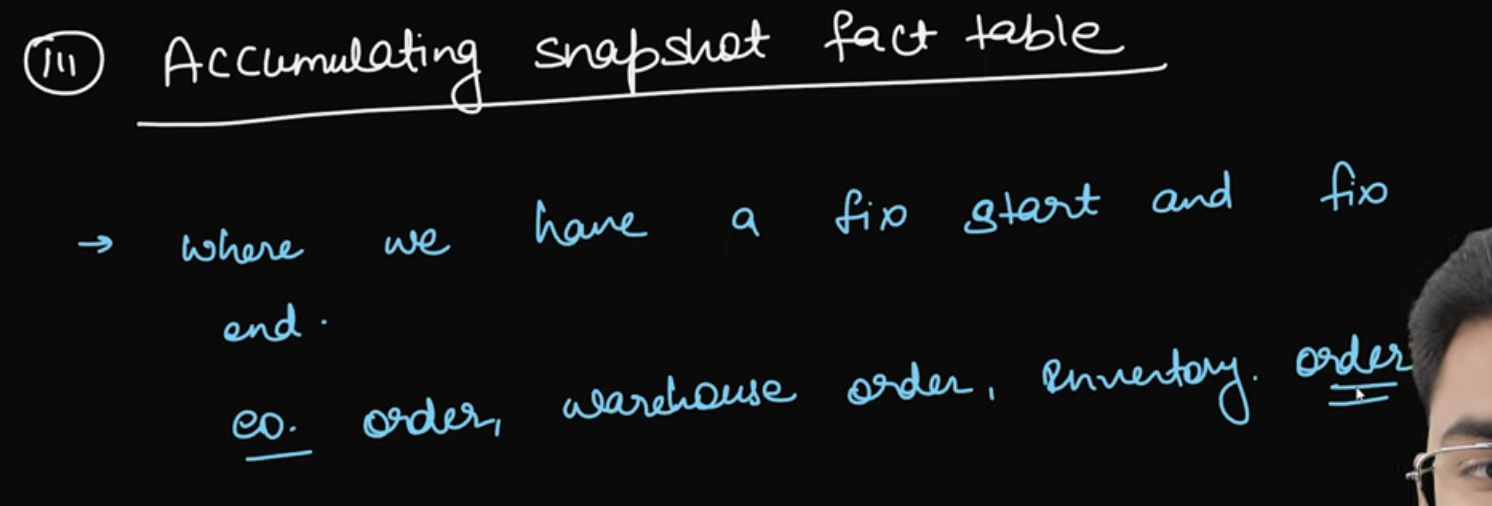 (iii) Accumulating snapshot fact table
→ where we have a fix start and fix
end.
ex. order, warehouse order, Inventory. order